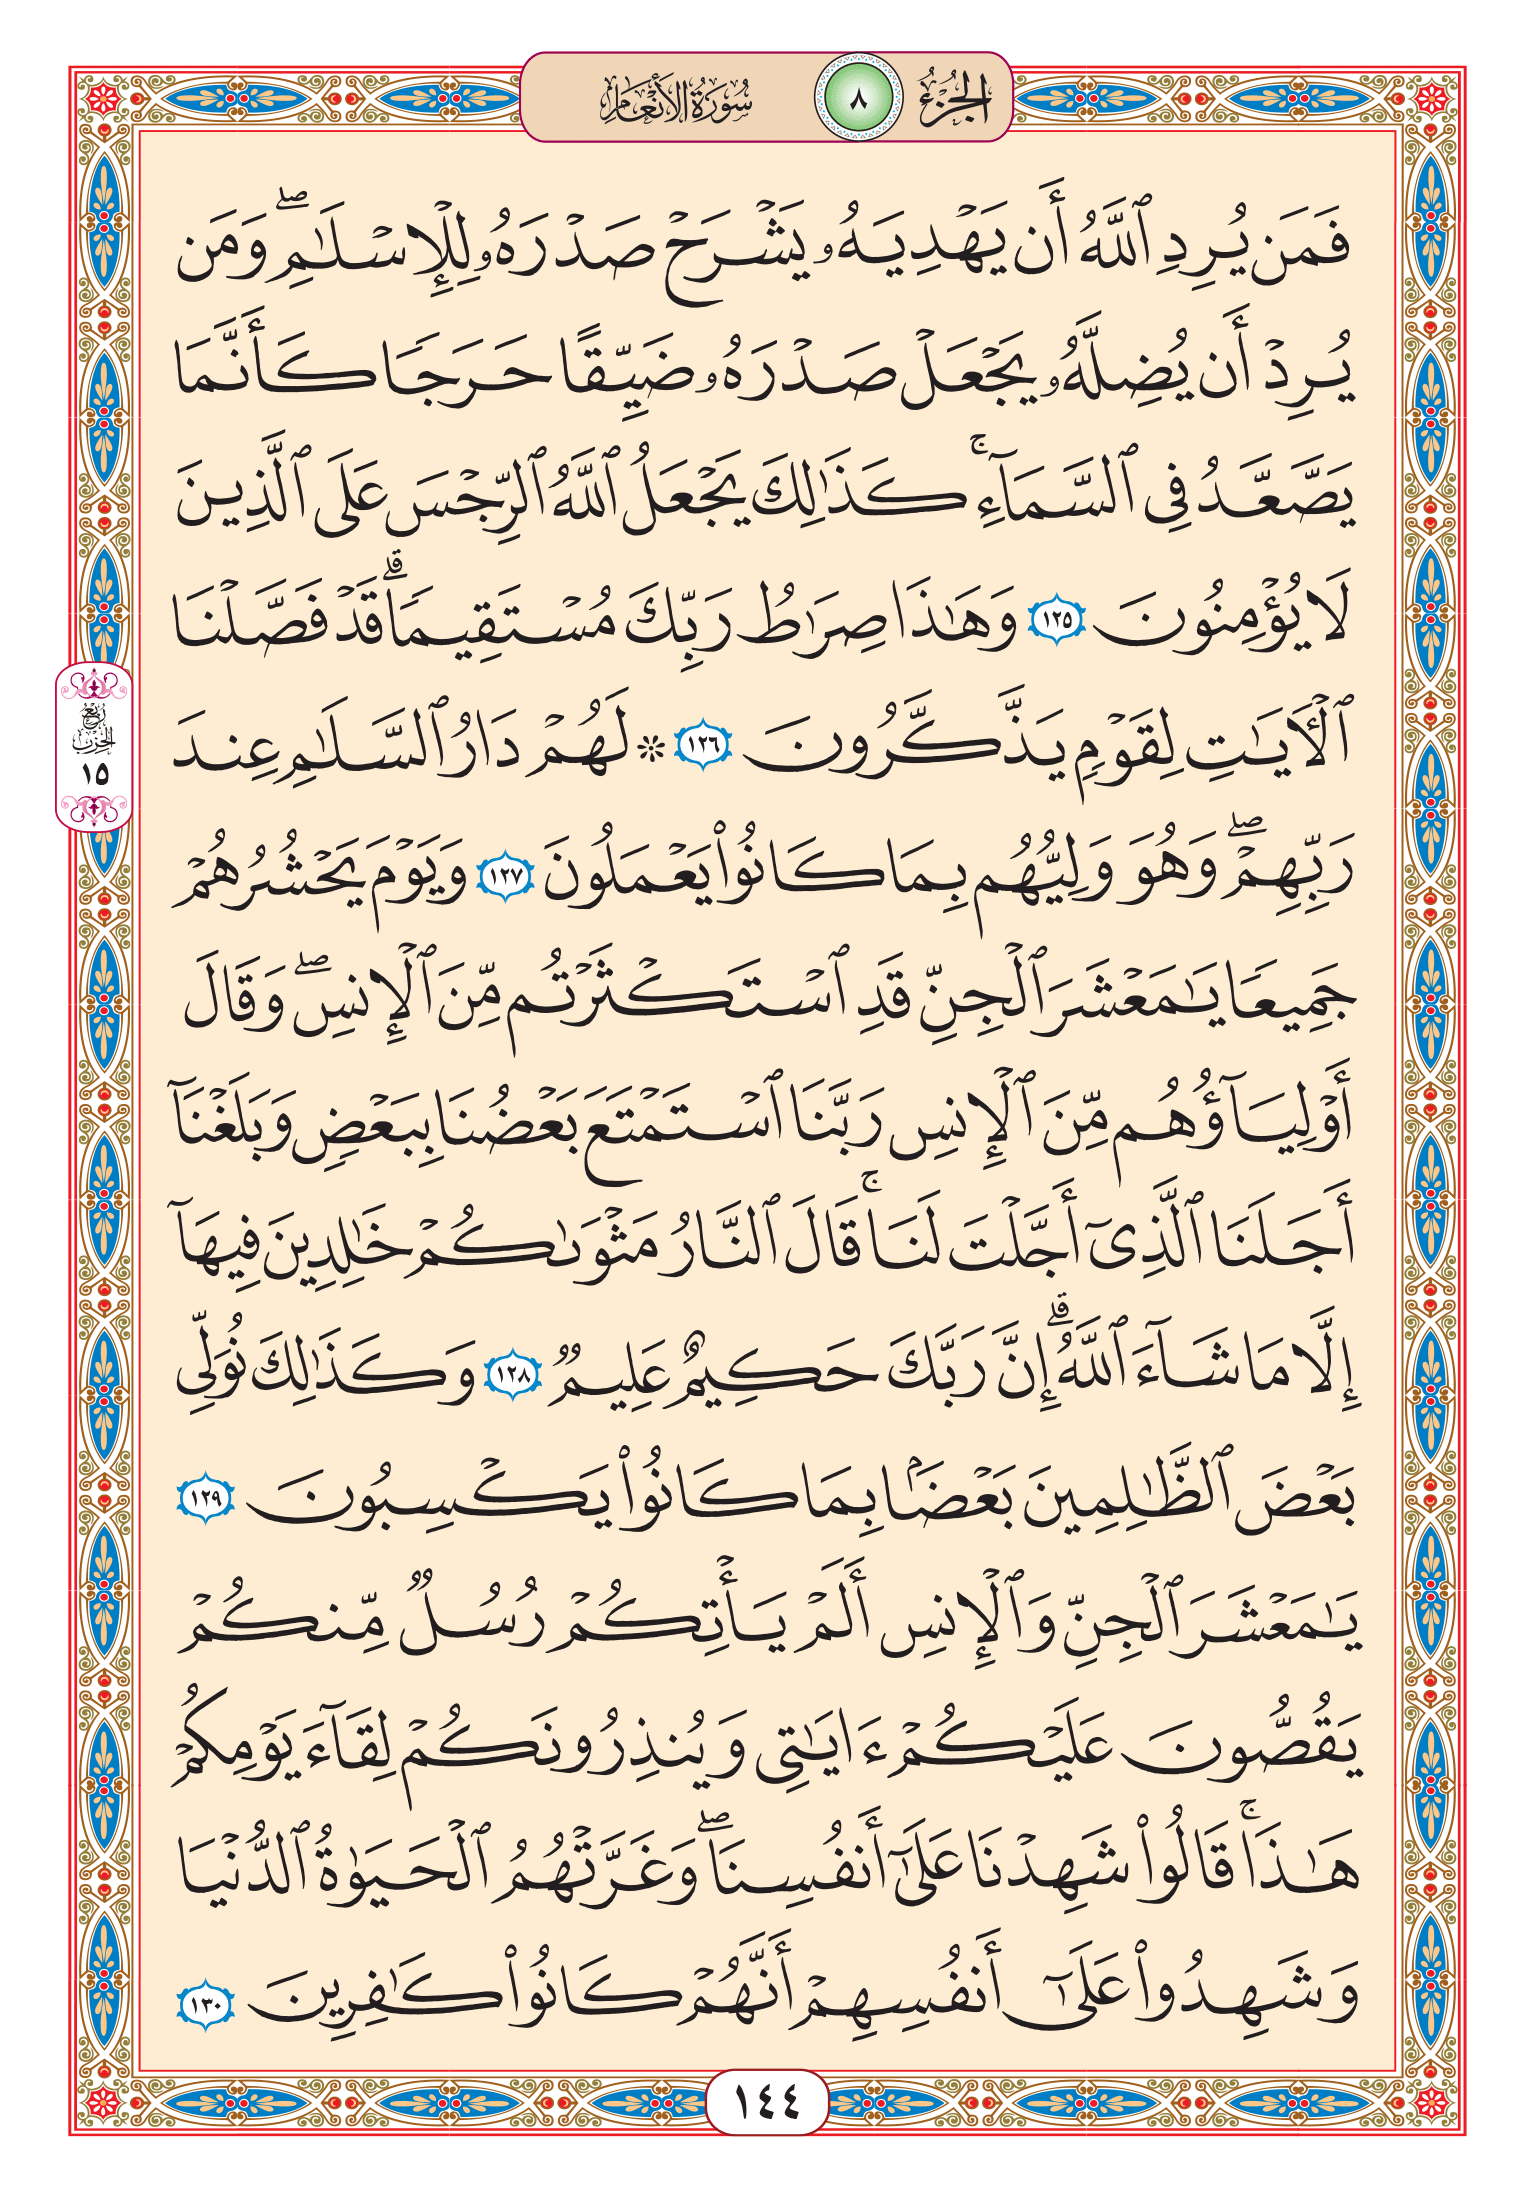 الجزء ٨ سورة الأنعام
فَمَن يُرِدِ ٱللَّهُ أَن يَهْدِيَهُۥ يَشْرَحْ صَدْرَهُۥ لِلْإِسْلَٰمِ ۖ وَمَن
يُرِدْ أَن يُضِلَّهُۥ يَجْعَلْ صَدْرَهُۥ ضَيِّقًا حَرَجًا كَأَنَّمَا
يَصَّعَّدُ فِى ٱلسَّمَآءِ ۚ كَذَٰلِكَ يَجْعَلُ ٱللَّهُ ٱلرِّجْسَ عَلَى ٱلَّذِينَ
لَا يُؤْمِنُونَ ١٢٥ وَهَٰذَا صِرَٰطُ رَبِّكَ مُسْتَقِيمًا ۗ قَدْ فَصَّلْنَا
ٱلْءَايَٰتِ لِقَوْمٍ يَذَّكَّرُونَ ١٢٦ ۞ لَهُمْ دَارُ ٱلسَّلَٰمِ عِندَ
رَبِّهِمْ ۖ وَهُوَ وَلِيُّهُم بِمَا كَانُوا۟ يَعْمَلُونَ ١٢٧ وَيَوْمَ يَحْشُرُهُمْ
جَمِيعًا يَٰمَعْشَرَ ٱلْجِنِّ قَدِ ٱسْتَكْثَرْتُم مِّنَ ٱلْإِنسِ ۖ وَقَالَ
أَوْلِيَآؤُهُم مِّنَ ٱلْإِنسِ رَبَّنَا ٱسْتَمْتَعَ بَعْضُنَا بِبَعْضٍ وَبَلَغْنَآ
أَجَلَنَا ٱلَّذِىٓ أَجَّلْتَ لَنَا ۚ قَالَ ٱلنَّارُ مَثْوَىٰكُمْ خَٰلِدِينَ فِيهَآ
إِلَّا مَا شَآءَ ٱللَّهُ ۗ إِنَّ رَبَّكَ حَكِيمٌ عَلِيمٌ ١٢٨ وَكَذَٰلِكَ نُوَلِّى
بَعْضَ ٱلظَّٰلِمِينَ بَعْضًۢا بِمَا كَانُوا۟ يَكْسِبُونَ ١٢٩
يَٰمَعْشَرَ ٱلْجِنِّ وَٱلْإِنسِ أَلَمْ يَأْتِكُمْ رُسُلٌ مِّنكُمْ
يَقُصُّونَ عَلَيْكُمْ ءَايَٰتِى وَيُنذِرُونَكُمْ لِقَآءَ يَوْمِكُمْ
هَٰذَا ۚ قَالُوا۟ شَهِدْنَا عَلَىٰٓ أَنفُسِنَا ۖ وَغَرَّتْهُمُ ٱلْحَيَوٰةُ ٱلدُّنْيَا
وَشَهِدُوا۟ عَلَىٰٓ أَنفُسِهِمْ أَنَّهُمْ كَانُوا۟ كَٰفِرِينَ ١٣٠
ربع
الحزب
١٥
١٤٤